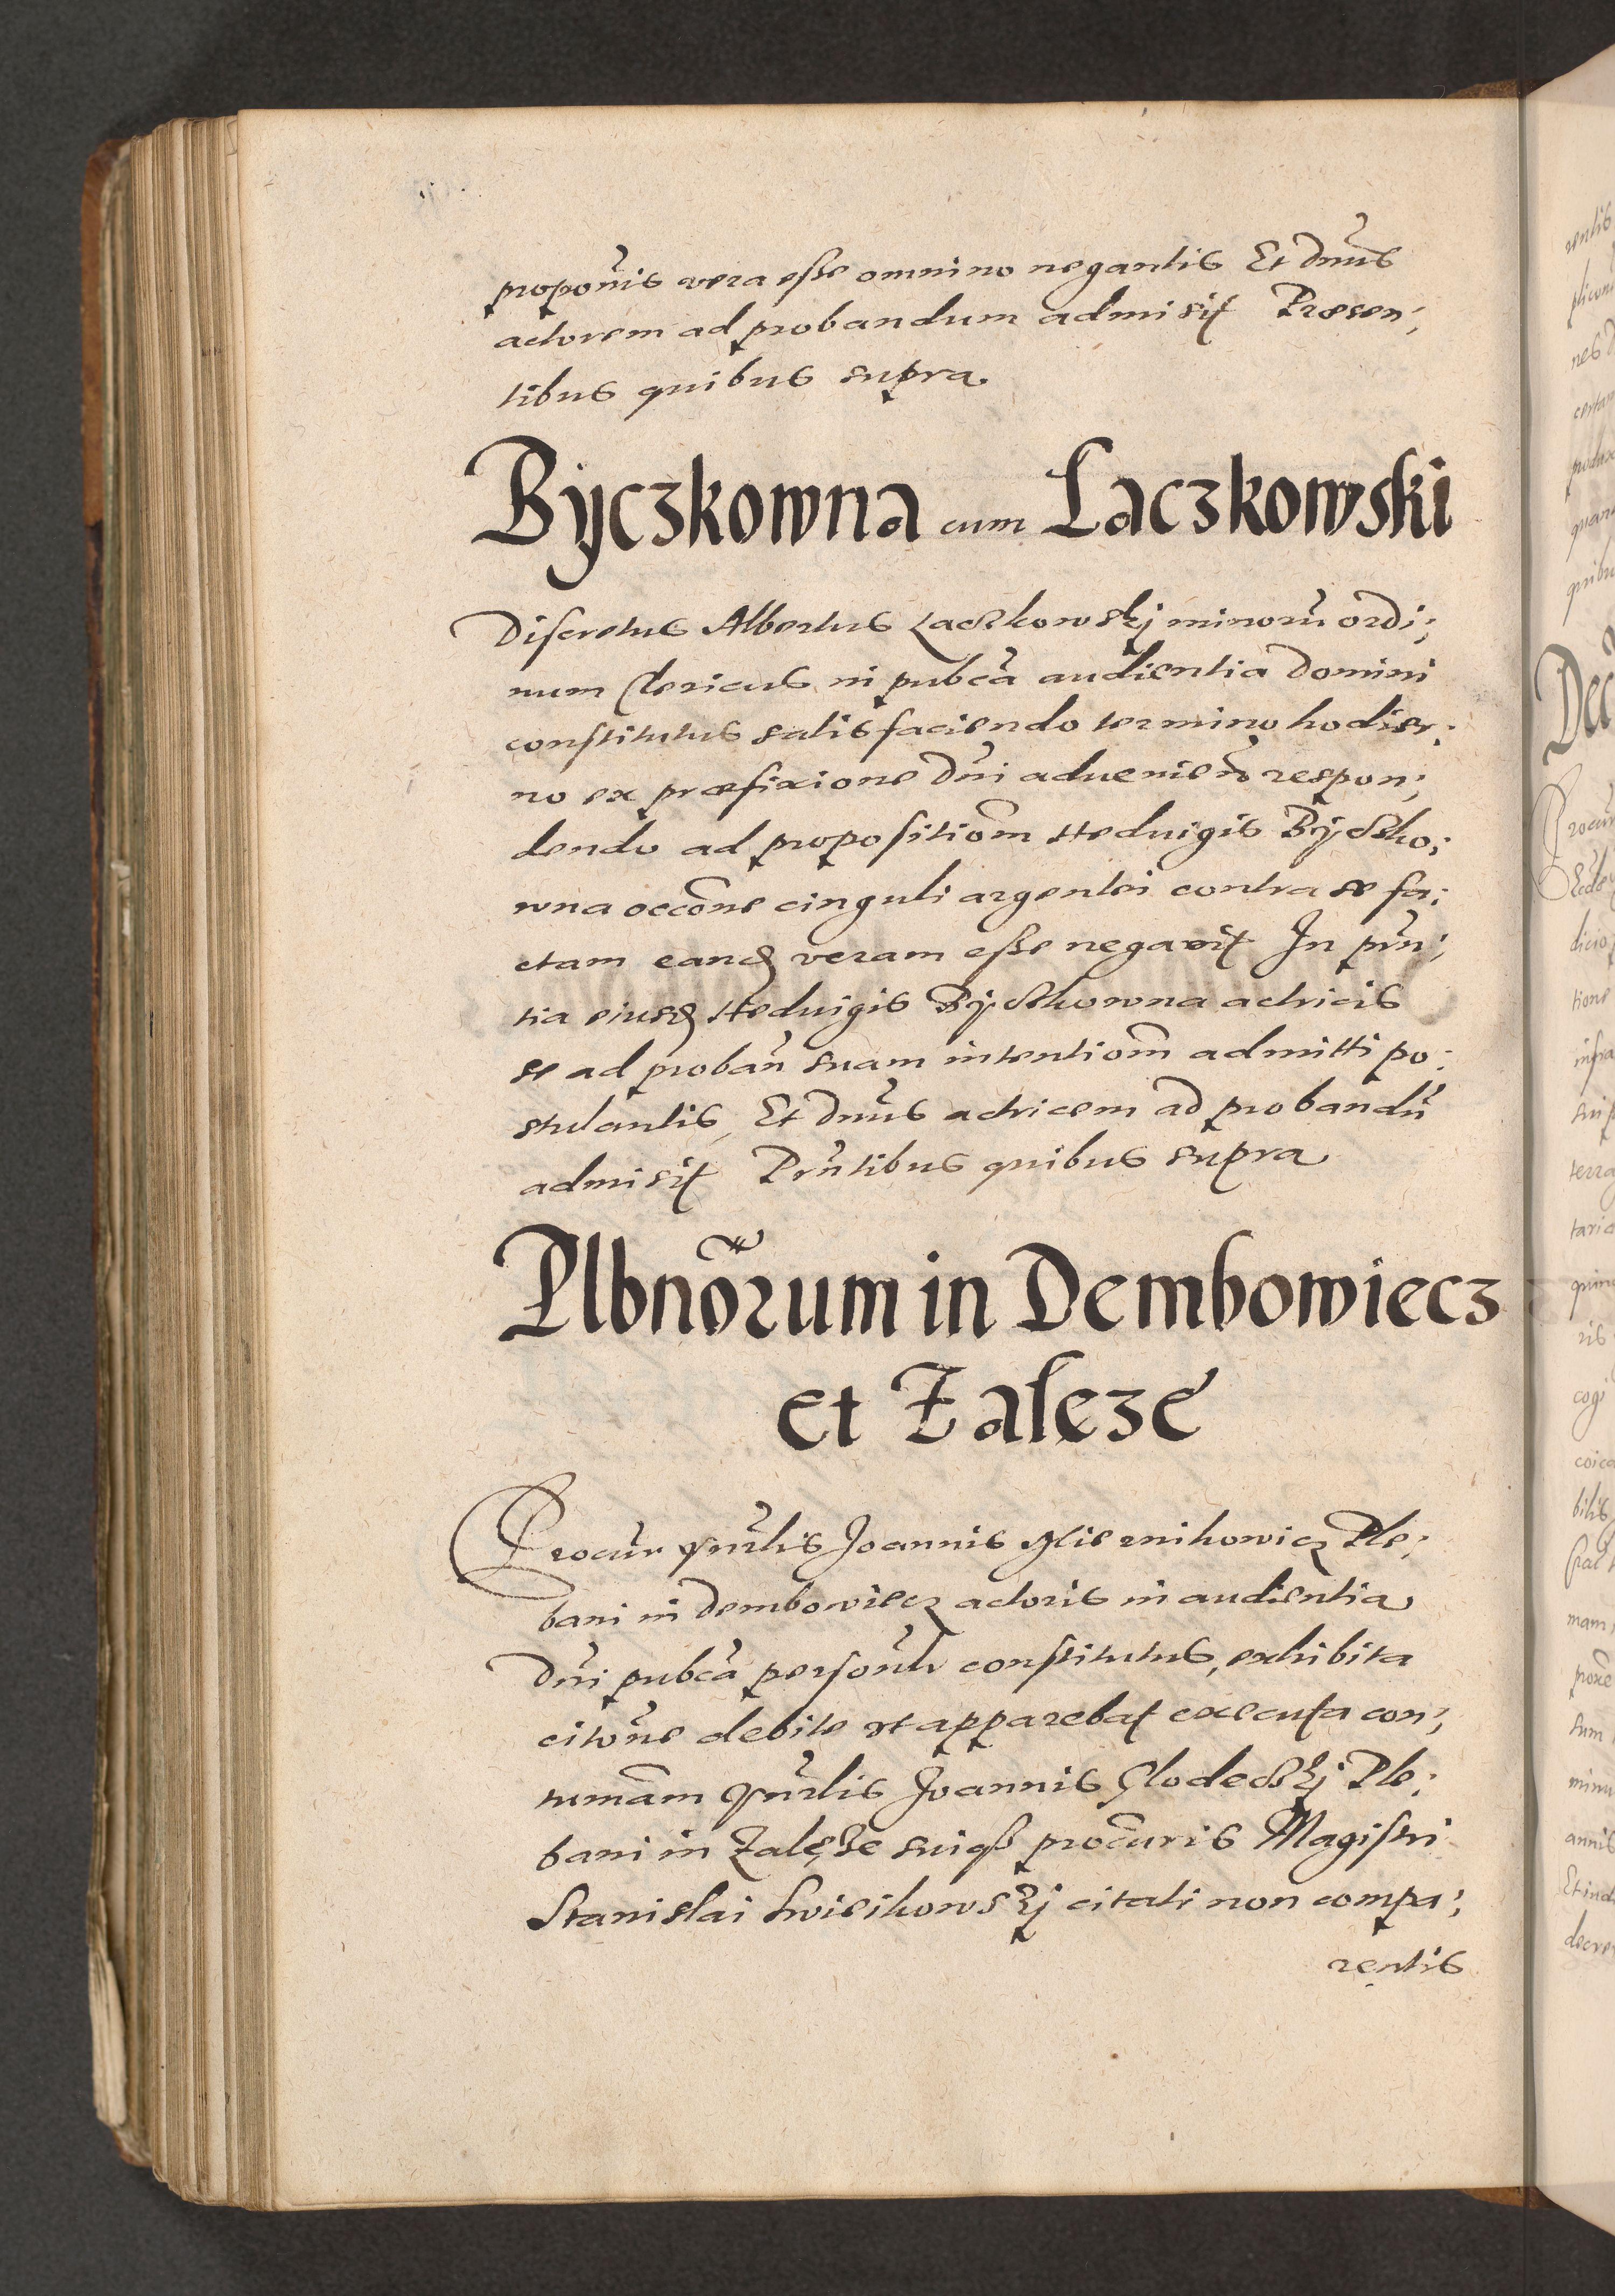 propoñis vera esse omnino negantis Et dnũs
actorem ad probandum admisit Præsen;
tibus quibus supra
Byczkowna cum Laczkowski
Discretus Albertus Laczkowskj minorũ ordi;
num Clericus in pubcã audientia Domini
constitutus satisfaciendo termino hodier;
no ex præfixione dñi advenien̄ respon;
dendo ad propositiõm Hedvigis Byczko;
wna occõne cinguli argentei contra se fa;
ctam eand veram esse negavit In pñn;
tia eiusd Hedvigis Byczkowna actricis
se ad probañ suam intentiõm admitti po;
stulantis, Et dnũs actricem ad probandũ
admisit Pñntibus quibus supra
Plbnõrum in Dembowiecz
et Zaleze
Procũr Joannis Ple;
bani in Dembowiecz actoris in audientia
dñi pubcã persoñlr constitutus, exhibita
citõne debite ut apparebat executa con;
tumãm Joannis Ple;
bani in Zalęze suiqß procũris Magistri
Stanislai citati non compa;
rentis